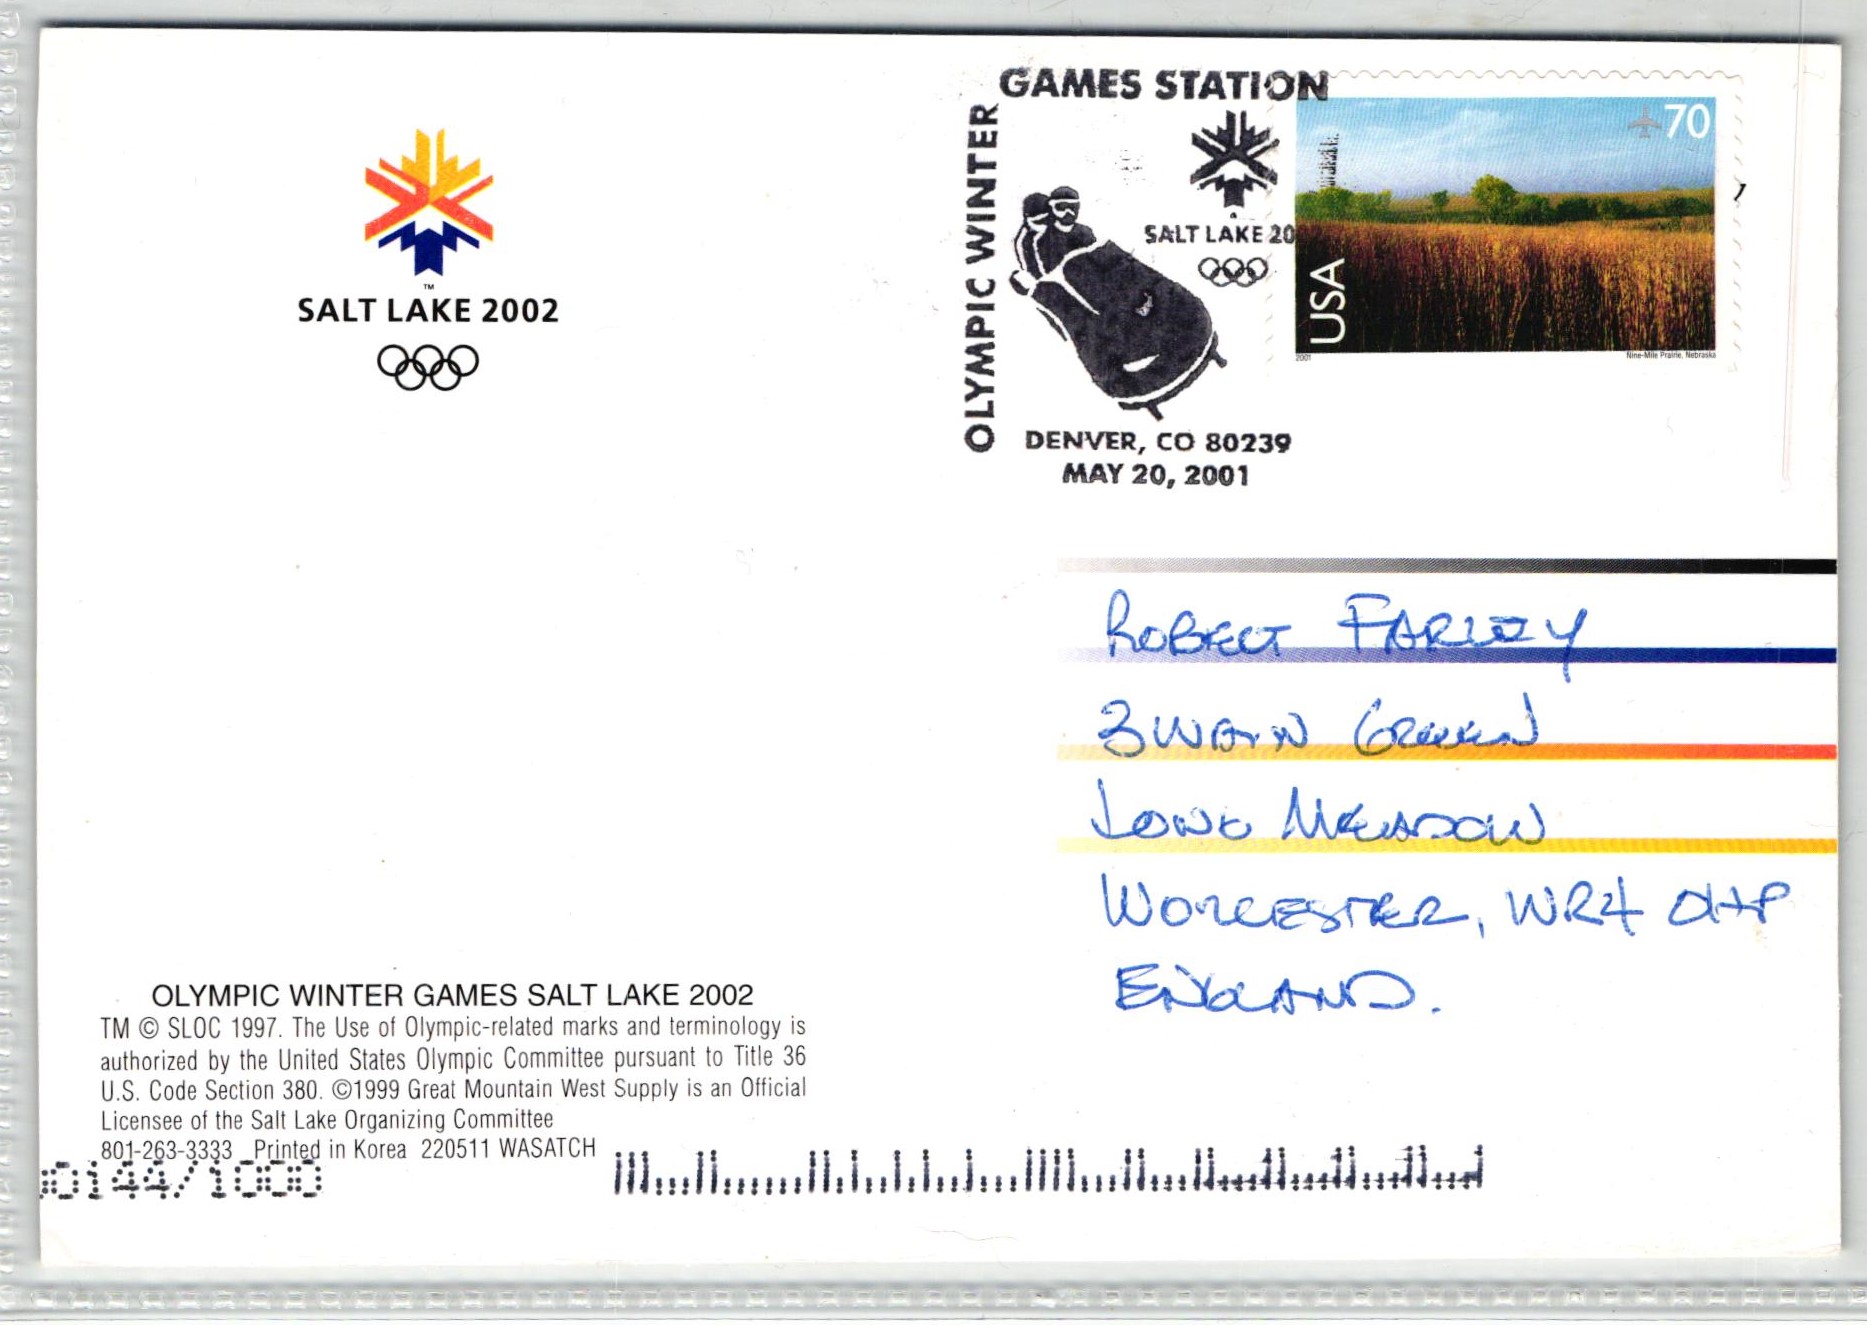 GAMES STATION
OLYMPIC WINTER
SALT LAKE 20
DENVER, CO 80239
MAY 20, 2001
70
USA
2001
Nine-Mile Prairie, Nebraska
TM
SALT LAKE 2002
ROBERT FARLEY
3 WAIN GREEN
LONG MEADOW
WORCESTER, WR4 0HP
ENGLAND.
OLYMPIC WINTER GAMES SALT LAKE 2002
TM © SLOC 1997. The Use of Olympic-related marks and terminology is
authorized by the United States Olympic Committee pursuant to Title 36
U.S. Code Section 380. ©1999 Great Mountain West Supply is an Official
Licensee of the Salt Lake Organizing Committee
801-263-3333 Printed in Korea 220511 WASATCH
0144/1000